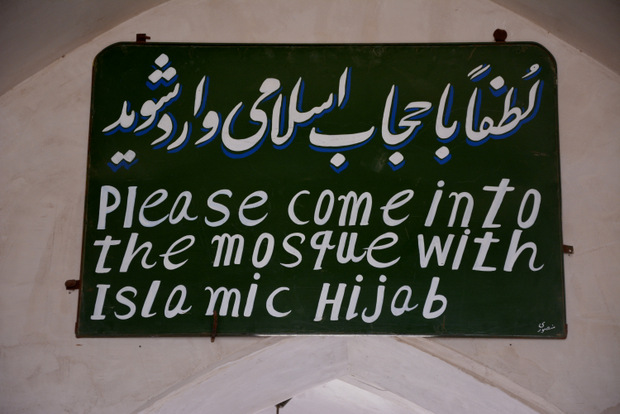 لطفاً با حجاب اسلامی وارد شوید
Please come into
the mosque with
Islamic Hijab